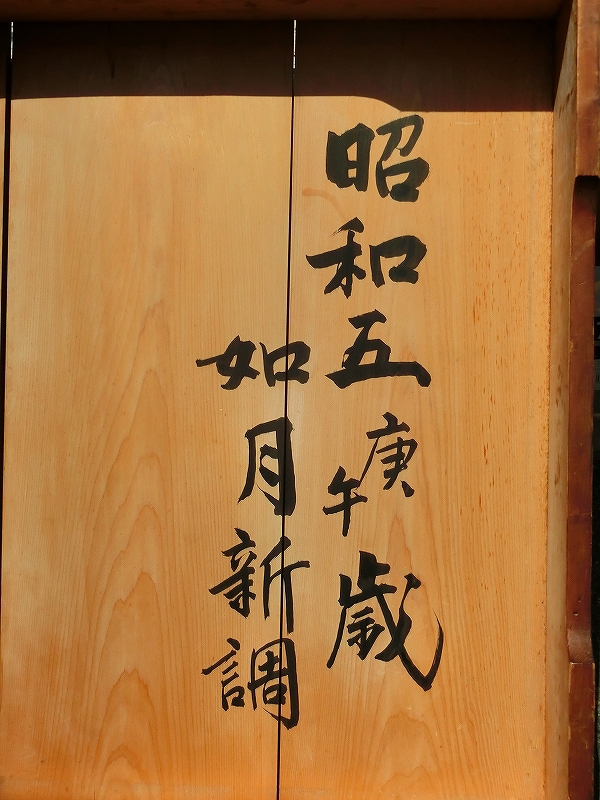 昭和五庚午歳
如月新調